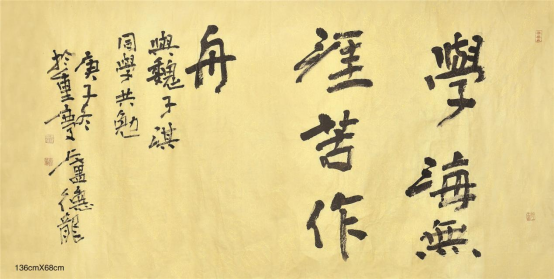 學海無
涯苦作
舟
與魏子淇
同學共勉
庚子冬
於重慶盧德龍
136cmX68cm